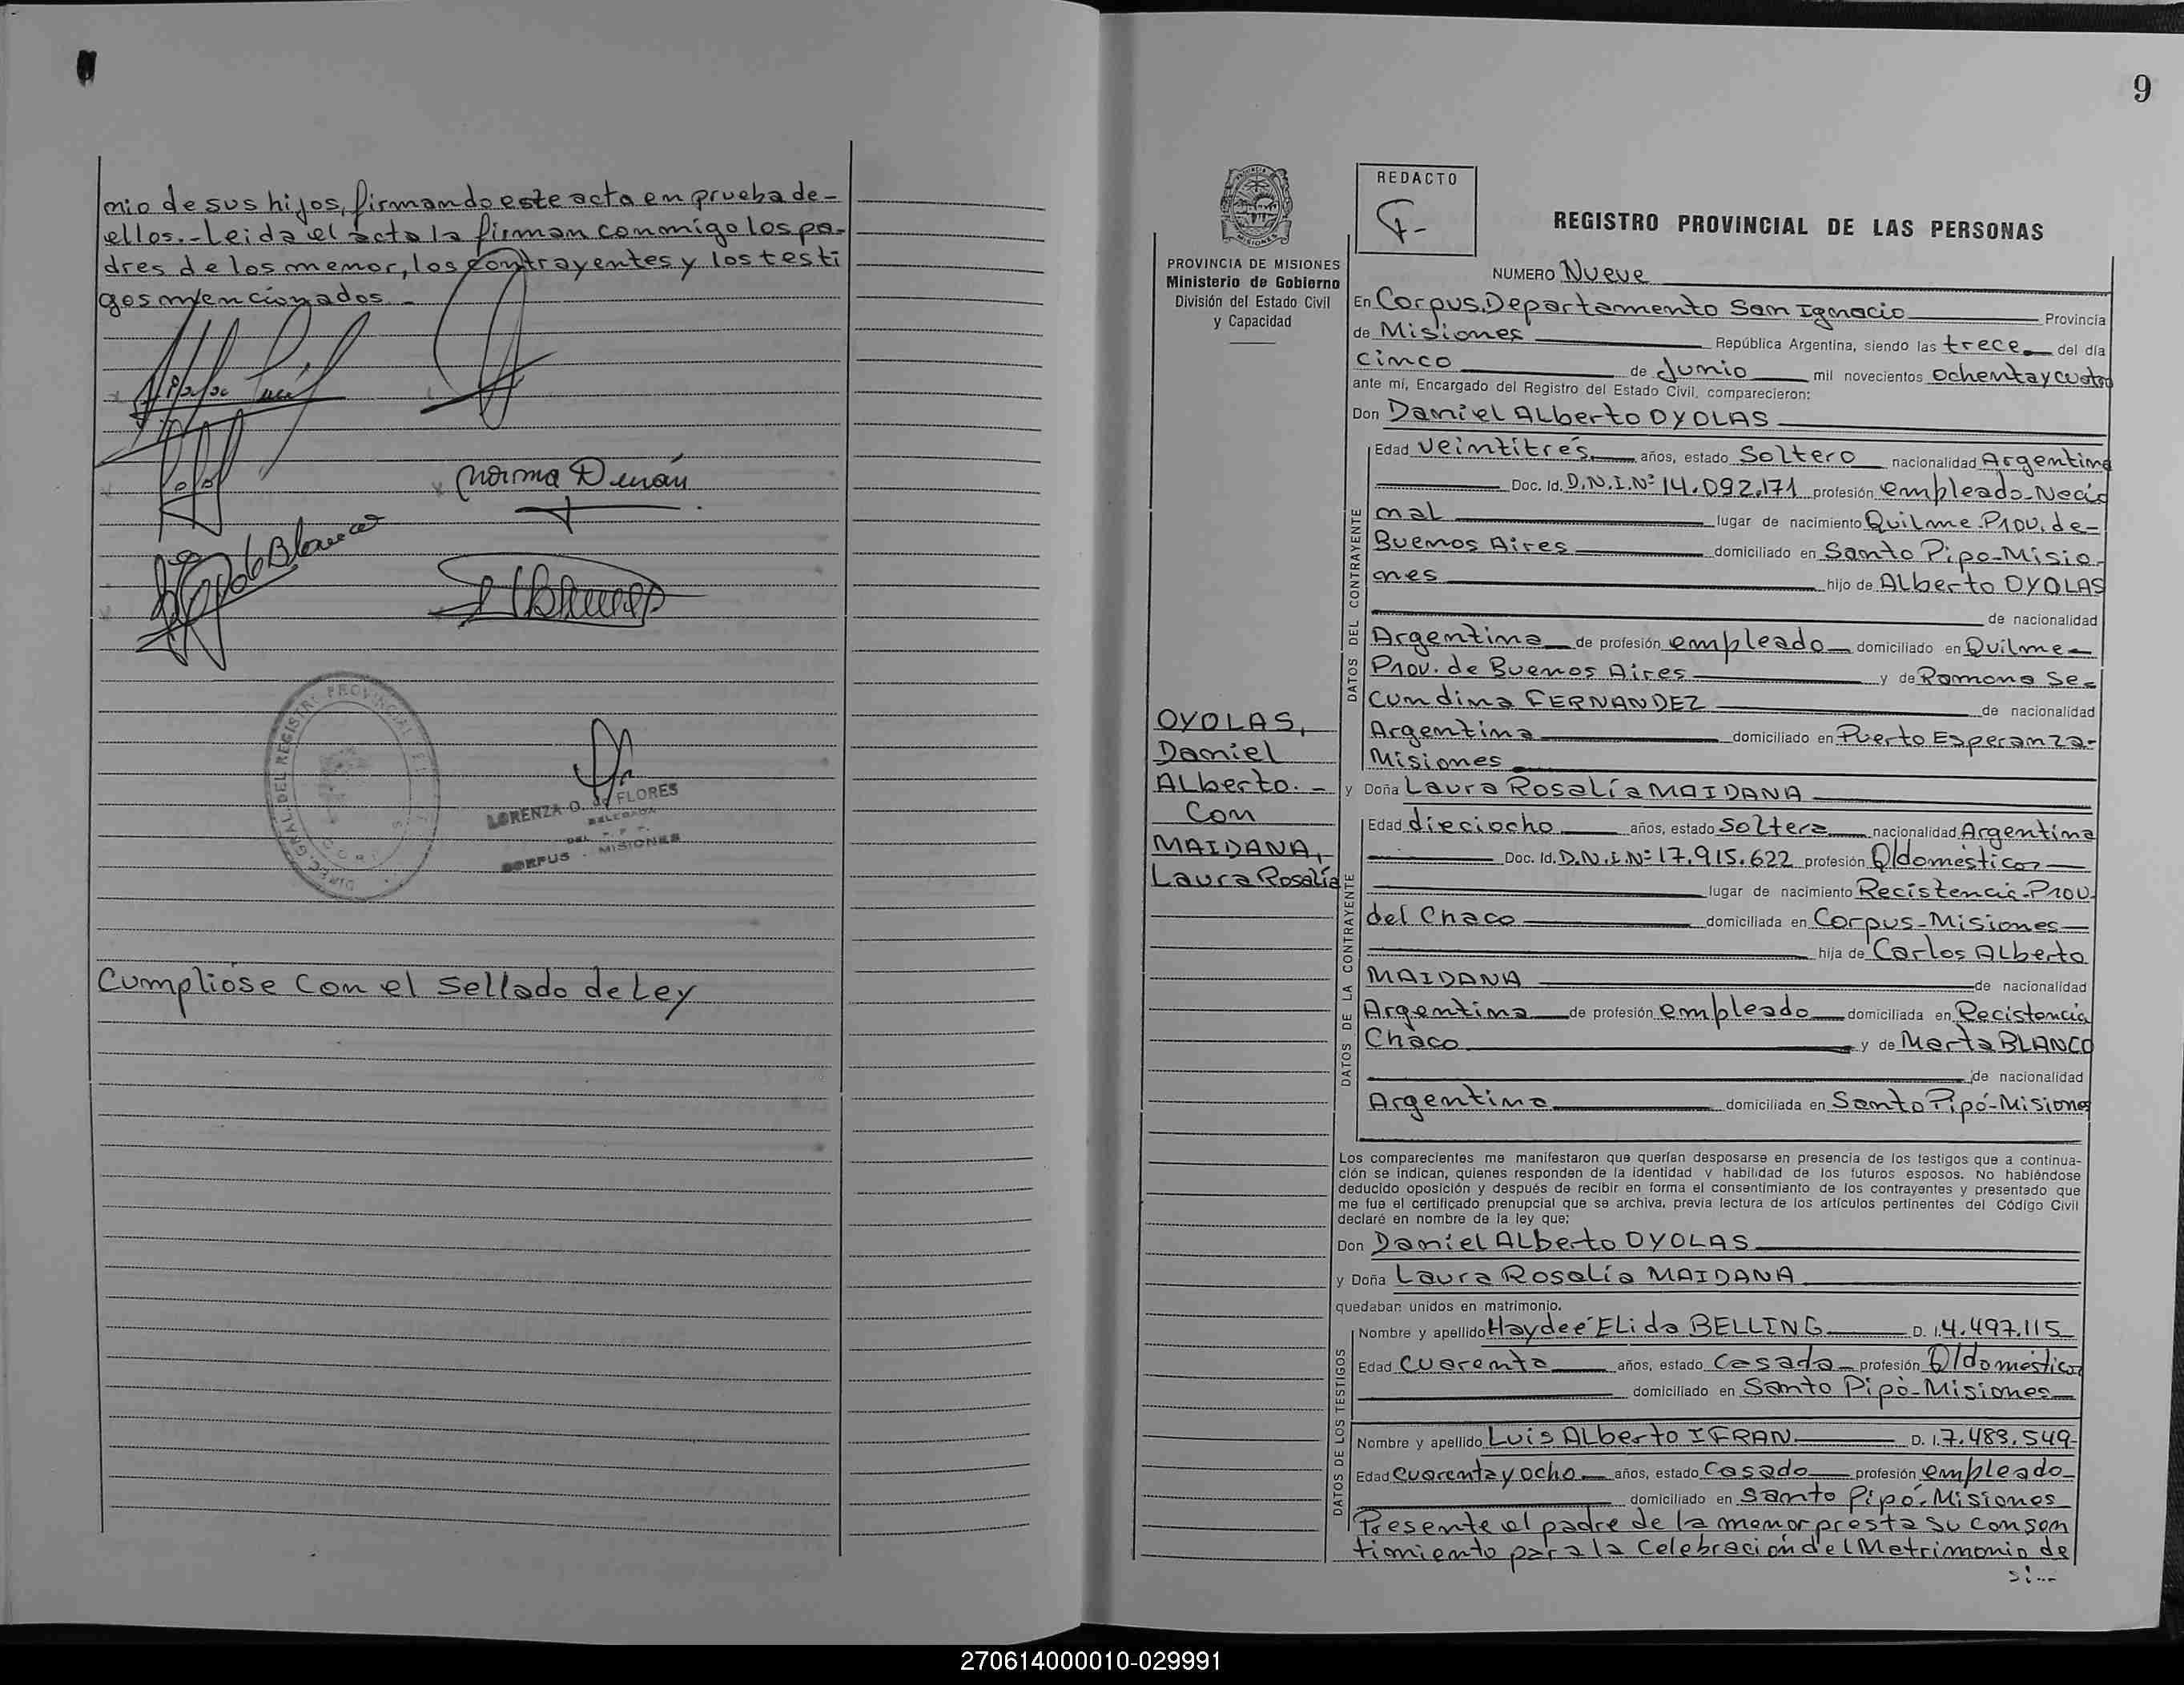 mio de sus hijos, firmando este acta en prueba de-
ellos.- Leida el acta la firman conmigo los pa-
dres de los menor, los contrayentes y los testi
gos mencionados.-
Norma Durán
Blanco
DIREC. GRAL. DEL REGISTRO PROVINCIAL
LORENZA O. de FLORES
DELEGADA
CORPUS - MISIONES
Cumpliose con el Sellado de Ley
9
PROVINCIA DE MISIONES
Ministerio de Gobierno
División del Estado Civil
y Capacidad
REDACTO
REGISTRO PROVINCIAL DE LAS PERSONAS
OYOLAS,
Daniel
Alberto.-
Con
MAIDANA,
Laura Rosalía
NUMERO Nueve
En Corpus, Departamento San Ignacio Provincia
de Misiones República Argentina, siendo las trece del día
cinco de Junio mil novecientos ochenta y cuatro
ante mí, Encargado del Registro del Estado Civil, comparecieron:
Don Daniel Alberto OYOLAS
DATOS DEL CONTRAYENTE
Edad veintitrés años, estado Soltero nacionalidad Argentina
Doc. Id. D.N.I.Nº 14.092.171 profesión empleado-Necio
nal lugar de nacimiento Quilme-Prov. de-
Buenos Aires domiciliado en Santo Pipo-Misio-
nes hijo de Alberto OYOLAS
de nacionalidad
Argentina de profesión empleado domiciliado en Quilme-
Prov. de Buenos Aires y de Ramona Se-
cundina FERNANDEZ de nacionalidad
Argentina domiciliado en Puerto Esperanza-
Misiones
y Doña Laura Rosalía MAIDANA
DATOS DE LA CONTRAYENTE
Edad dieciocho años, estado Soltera nacionalidad Argentina
Doc. Id. D.N.I.Nº 17.915.622 profesión Q/domésticos
lugar de nacimiento Recistencia-Prov.
del Chaco domiciliada en Corpus-Misiones
hija de Carlos Alberto
MAIDANA de nacionalidad
Argentina de profesión empleado domiciliada en Recistencia
Chaco y de Marta BLANCO
de nacionalidad
Argentina domiciliada en Santo Pipó-Misiones
Los comparecientes me manifestaron que querían desposarse en presencia de los testigos que a continua-
ción se indican, quienes responden de la identidad y habilidad de los futuros esposos. No habiéndose
deducido oposición y después de recibir en forma el consentimiento de los contrayentes y presentado que
me fue el certificado prenupcial que se archiva, previa lectura de los artículos pertinentes del Código Civil
declaré en nombre de la ley que:
Don Daniel Alberto OYOLAS
y Doña Laura Rosalía MAIDANA
quedaban unidos en matrimonio.
DATOS DE LOS TESTIGOS
Nombre y apellido Haydeé Elida BELLING D. I. 4.497.115
Edad cuarenta años, estado Casada profesión Q/domésticos
domiciliado en Santo Pipó-Misiones
Nombre y apellido Luis Alberto IFRAN D. I. 7.483.549
Edad cuarenta y ocho años, estado Casado profesión empleado
domiciliado en Santo Pipó-Misiones
Presente el padre de la menor presta su consen
timiento para la celebración del Matrimonio de
si...
270614000010-029991